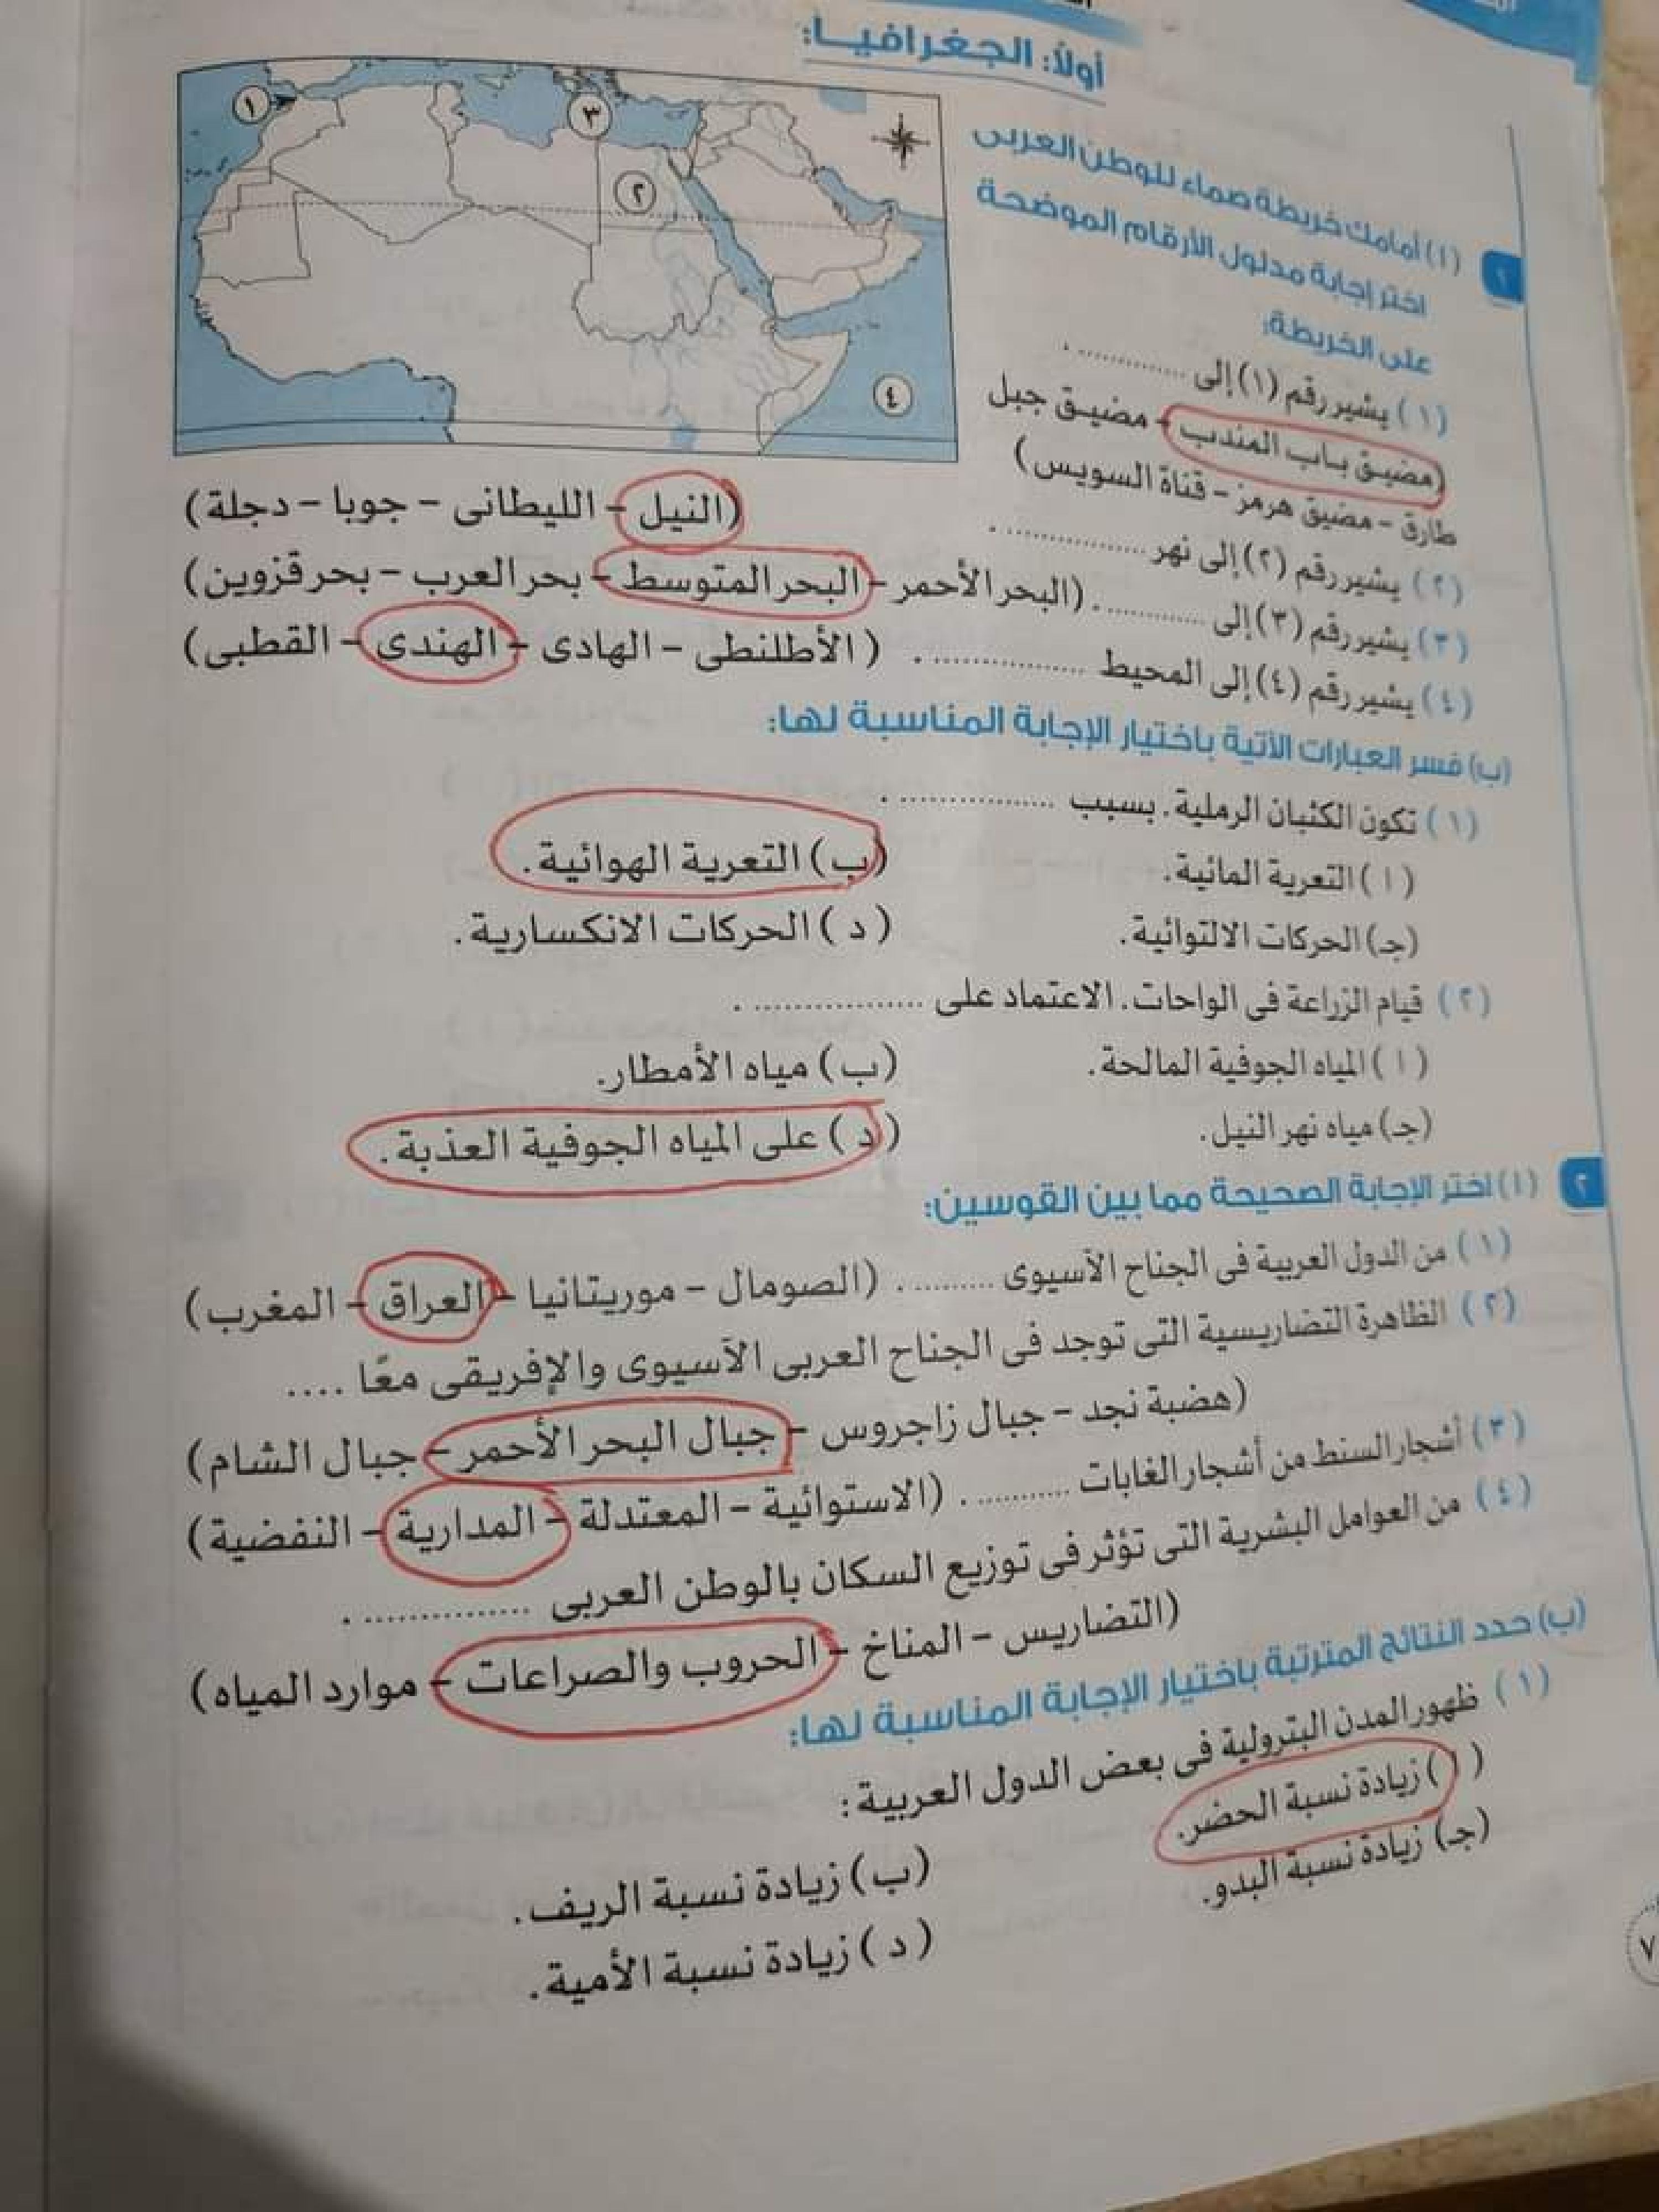 أولاً: الجغرافيا:
١
(١) أمامك خريطة صماء للوطن العربى
اختر إجابة مدلول الأرقام الموضحة
على الخريطة:
١
٣
٢
٤
(١) يشير رقم (١) إلى ............ .
(مضيق باب المندب - مضيق جبل
طارق - مضيق هرمز - قناة السويس)
(٢) يشير رقم (٢) إلى نهر ............ . (النيل - الليطانى - جوبا - دجلة)
(٣) يشير رقم (٣) إلى ............ . (البحر الأحمر - البحر المتوسط - بحر العرب - بحر قزوين)
(٤) يشير رقم (٤) إلى المحيط ............ . (الأطلنطى - الهادى - الهندى - القطبى)
(ب) فسر العبارات الآتية باختيار الإجابة المناسبة لها:
(١) تكون الكثبان الرملية. بسبب ............ .
(ا) التعرية المائية. (ب) التعرية الهوائية.
(جـ) الحركات الالتوائية. (د) الحركات الانكسارية.
(٢) قيام الزراعة فى الواحات. الاعتماد على ............ .
(ا) المياه الجوفية المالحة. (ب) مياه الأمطار.
(جـ) مياه نهر النيل. (د) على المياه الجوفية العذبة.
٢ (ا) اختر الإجابة الصحيحة مما بين القوسين:
(١) من الدول العربية فى الجناح الآسيوى ......... . (الصومال - موريتانيا - العراق - المغرب)
(٢) الظاهرة التضاريسية التى توجد فى الجناح العربى الآسيوى والإفريقى معًا ....
(هضبة نجد - جبال زاجروس - جبال البحر الأحمر - جبال الشام)
(٣) أشجار السنط من أشجار الغابات ........... . (الاستوائية - المعتدلة - المدارية - النفضية)
(٤) من العوامل البشرية التى تؤثر فى توزيع السكان بالوطن العربى ............ .
(التضاريس - المناخ - الحروب والصراعات - موارد المياه)
(ب) حدد النتائج المترتبة باختيار الإجابة المناسبة لها:
(١) ظهور المدن البترولية فى بعض الدول العربية:
(ا) زيادة نسبة الحضر. (ب) زيادة نسبة الريف.
(جـ) زيادة نسبة البدو. (د) زيادة نسبة الأمية.